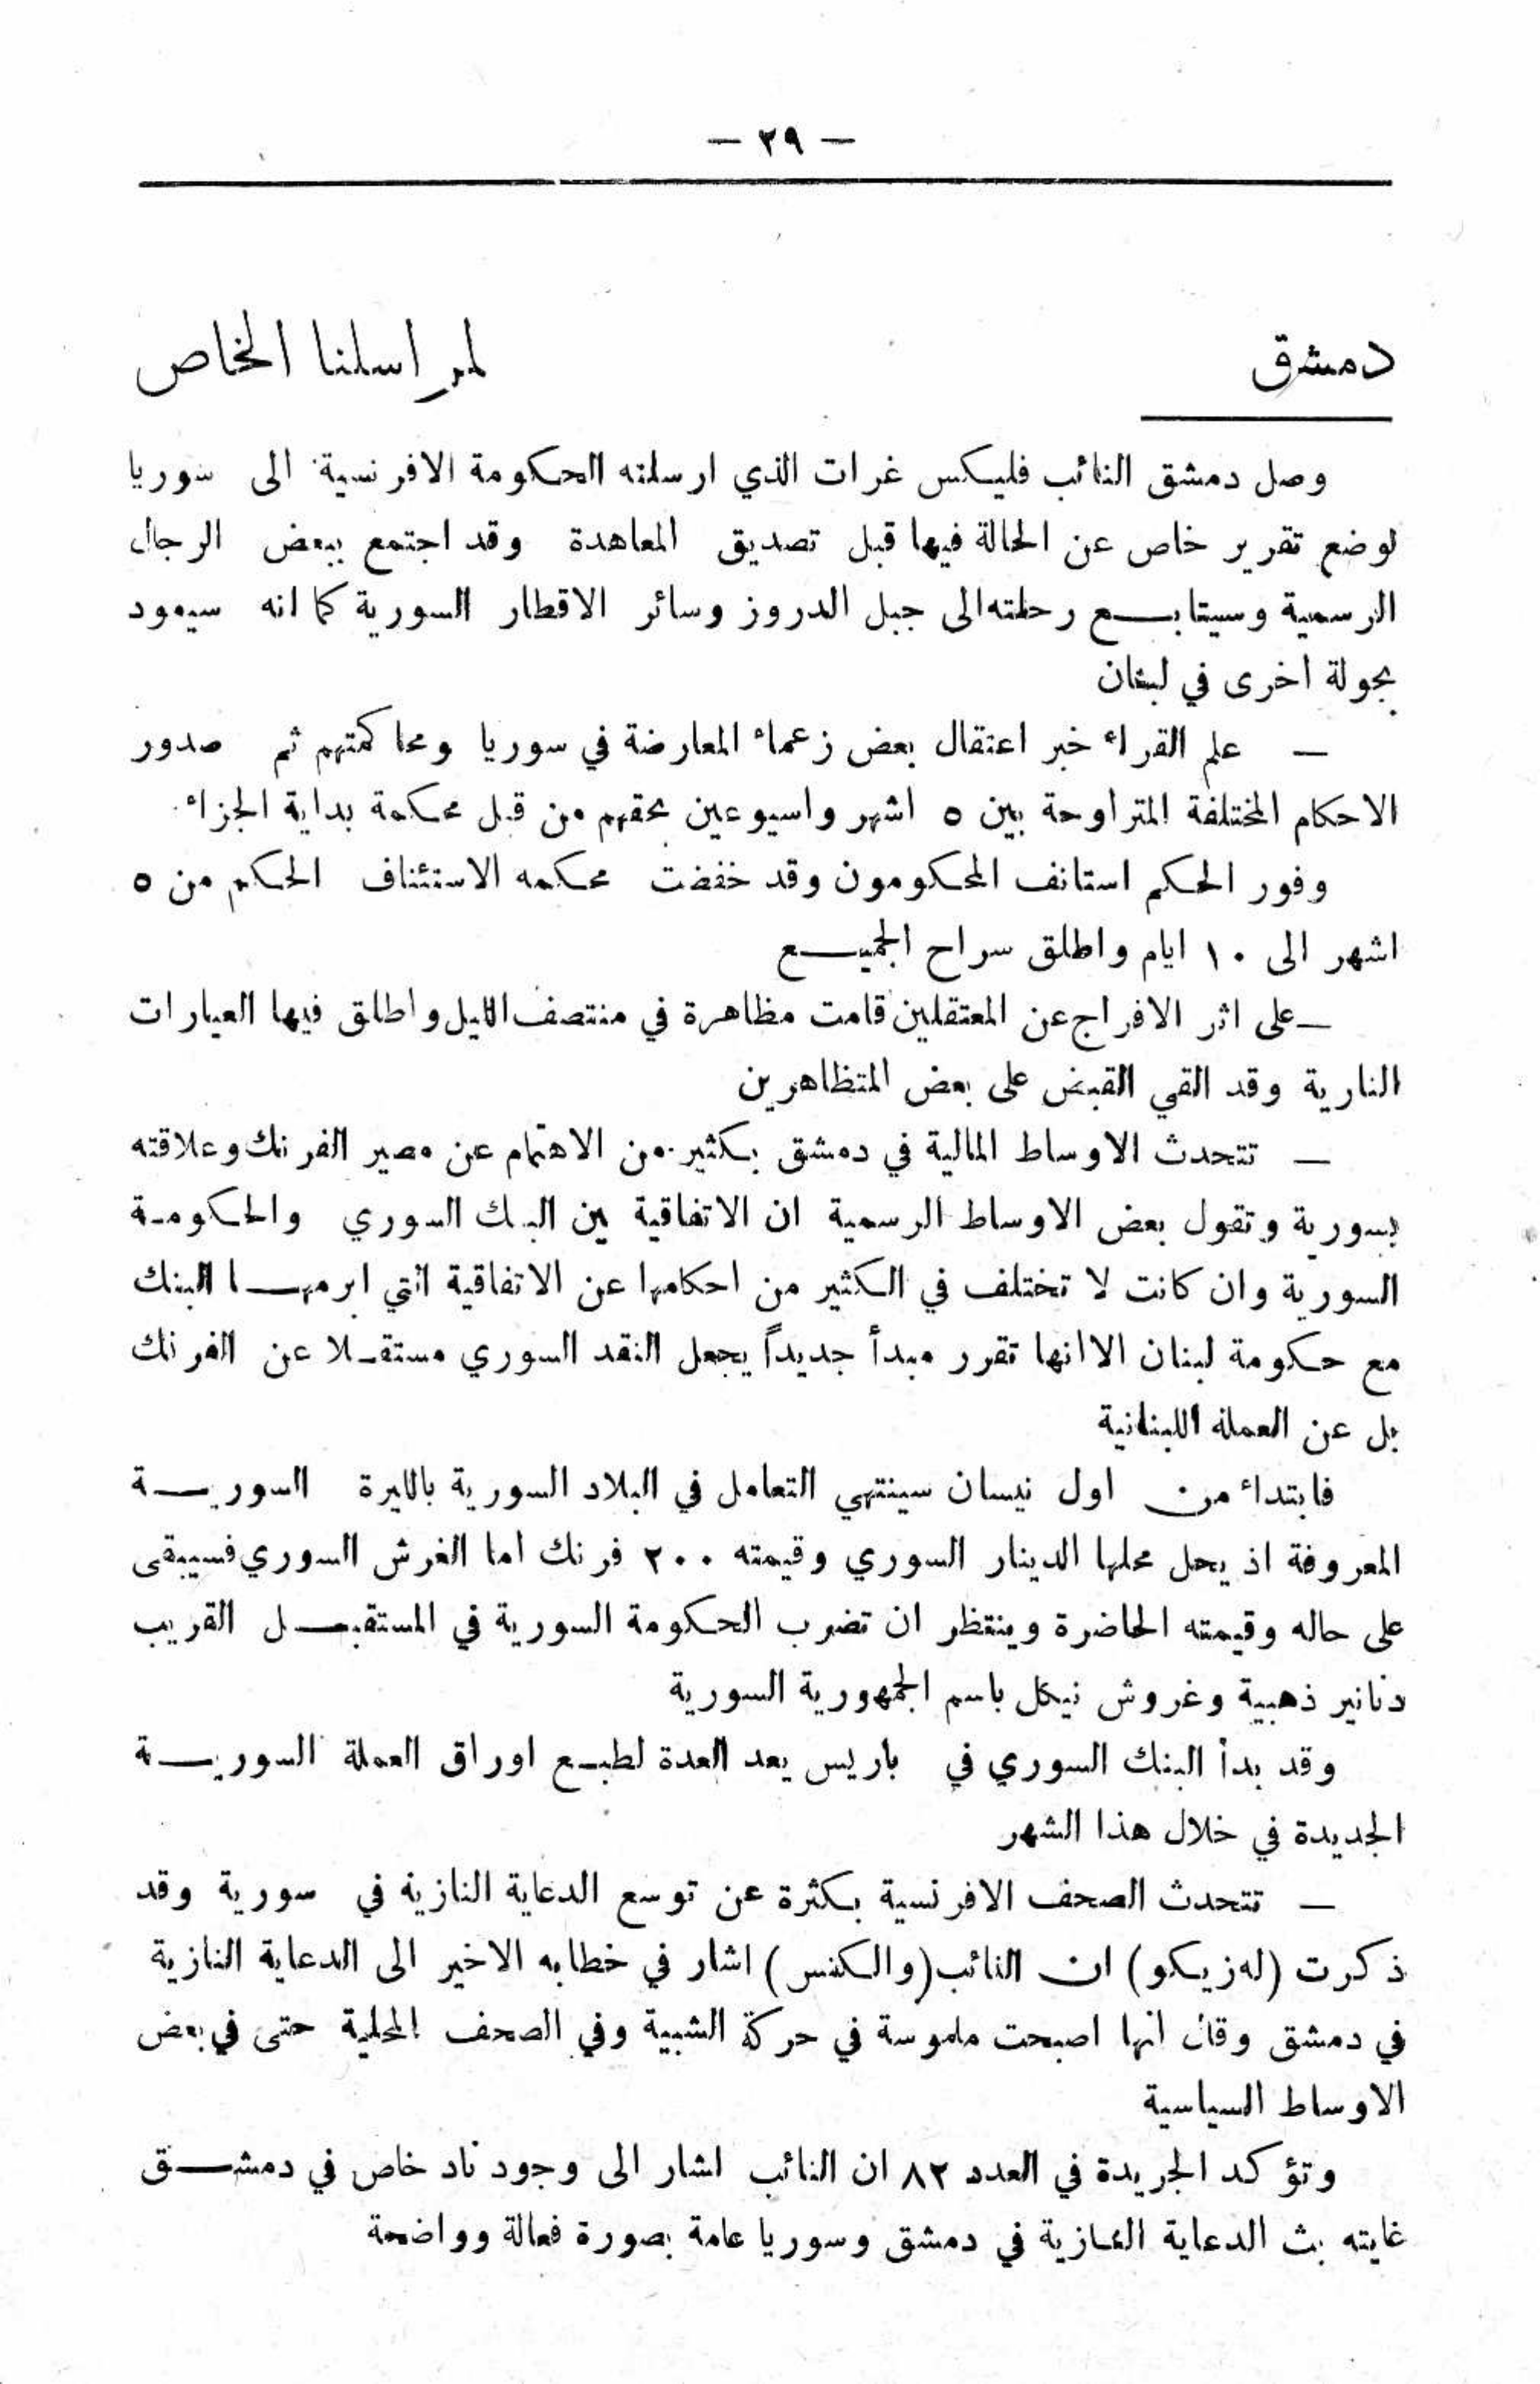 — ٢٩ —
دمشق لمراسلنا الخاص
وصل دمشق النائب فليكس غرات الذي ارسلته الحكومة الافرنسية الى سوريا
لوضع تقرير خاص عن الحالة فيها قبل تصديق المعاهدة وقد اجتمع ببعض الرجال
الرسمية وسيتابع رحلته الى جبل الدروز وسائر الاقطار السورية كما انه سيعود
بجولة اخرى في لبنان
— علم القراء خبر اعتقال بعض زعماء المعارضة في سوريا ومحاكمتهم ثم صدور
الاحكام المختلفة المتراوحة بين ٥ اشهر واسبوعين بحقهم من قبل محكمة بداية الجزاء.
وفور الحكم استانف المحكومون وقد خفضت محكمه الاستئناف الحكم من ٥
اشهر الى ١٠ ايام واطلق سراح الجميع
— على اثر الافراج عن المعتقلين قامت مظاهرة في منتصف الليل واطلق فيها العيارات
النارية وقد القي القبض على بعض المتظاهرين
— تتحدث الاوساط المالية في دمشق بكثير من الاهتمام عن مصير الفرنك وعلاقته
بسورية وتقول بعض الاوساط الرسمية ان الاتفاقية بين البنك السوري والحكومة
السورية وان كانت لا تختلف في الكثير من احكامها عن الاتفاقية التي ابرمها البنك
مع حكومة لبنان الا انها تقرر مبدأ جديداً يجعل النقد السوري مستقلا عن الفرنك
بل عن العملة اللبنانية
فابتداء من اول نيسان سينتهي التعامل في البلاد السورية بالليرة السورية
المعروفة اذ يحل محلها الدينار السوري وقيمته ٢٠٠ فرنك اما الغرش السوري فسيبقى
على حاله وقيمته الحاضرة وينتظر ان تضرب الحكومة السورية في المستقبل القريب
دنانير ذهبية وغروش نيكل باسم الجمهورية السورية
وقد بدأ البنك السوري في باريس يعد العدة لطبع اوراق العملة السورية
الجديدة في خلال هذا الشهر
— تتحدث الصحف الافرنسية بكثرة عن توسع الدعاية النازية في سورية وقد
ذكرت (له زيكو) ان النائب (والكنس) اشار في خطابه الاخير الى الدعاية النازية
في دمشق وقال انها اصبحت ملموسة في حركة الشبيبة وفي الصحف المحلية حتى في بعض
الاوساط السياسية
وتؤكد الجريدة في العدد ٨٢ ان النائب اشار الى وجود ناد خاص في دمشق
غايته بث الدعاية النازية في دمشق وسوريا عامة بصورة فعالة وواضحة